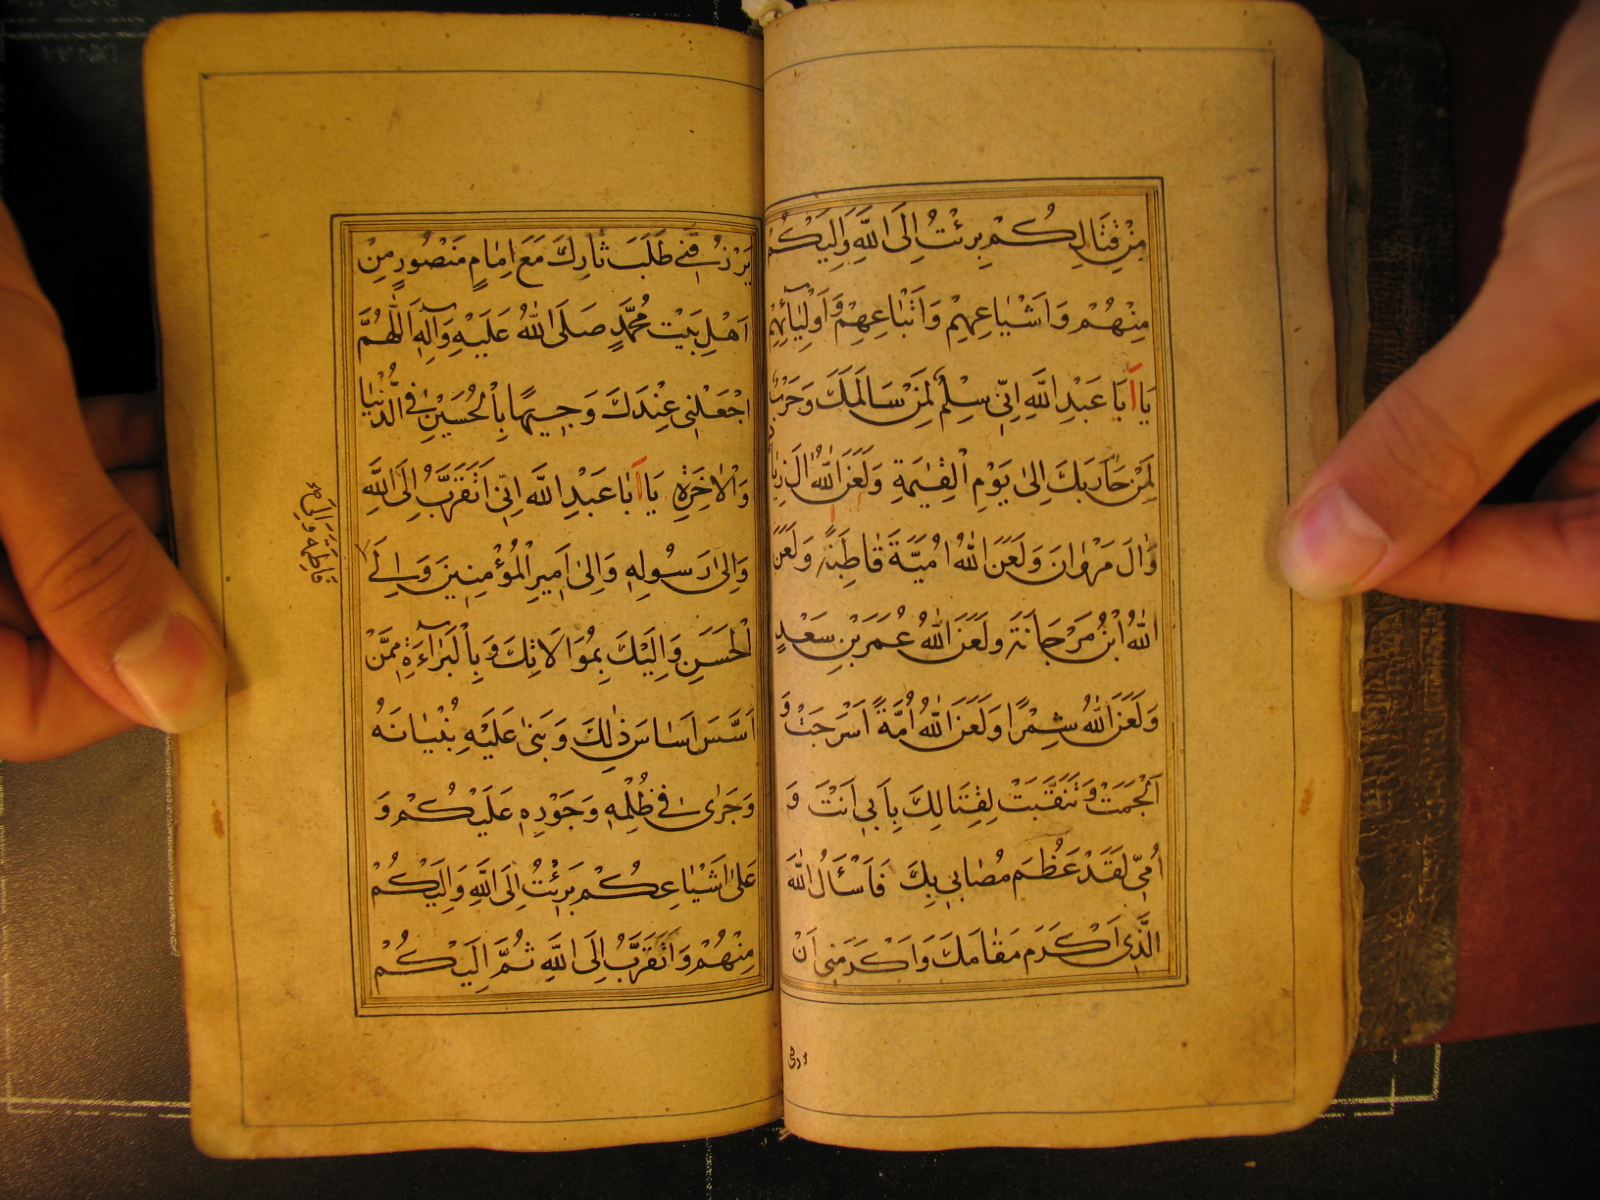 مِنْ قِتَالِكُمْ بَرِئْتُ اِلَى اللّٰهِ وَاِلَيْكُمْ
مِنْهُمْ وَاَشْيَاعِهِمْ وَاَتْبَاعِهِمْ وَاَوْلِيَائِهِمْ
يَا اَبَا عَبْدِ اللّٰهِ اِنّٖى سِلْمٌ لِمَنْ سَالَمَكَ وَحَرْبٌ
لِمَنْ حَارَبَكَ اِلىٰ يَوْمِ الْقِيٰمَةِ وَلَعَنَ اللّٰهُ اٰلَ زِيَادٍ
وَاٰلَ مَرْوَانَ وَلَعَنَ اللّٰهُ اُمَيَّةَ قَاطِبَةً وَلَعَنَ
اللّٰهُ ابْنَ مَرْجَانَةَ وَلَعَنَ اللّٰهُ عُمَرَ بْنِ سَعْدٍ
وَلَعَنَ اللّٰهُ شِمْرًا وَلَعَنَ اللّٰهُ اُمَّةً اَسْرَجَتْ وَ
اَلْجَمَتْ وَتَنَقَّبَتْ لِقِتَالِكَ بِاَبِى اَنْتَ وَ
اُمِّى لَقَدْ عَظُمَ مُصَابِى بِكَ فَاَسْئَلُ اللّٰهَ
الَّذِى اَكْرَمَ مَقَامَكَ وَاَكْرَمَنِى اَنْ
يرزقنى
يَرْزُقَنِى طَلَبَ ثَارِكَ مَعَ اِمَامٍ مَنْصُورٍ مِنْ
اَهْلِ بَيْتِ مُحَمَّدٍ صَلَّى اللّٰهُ عَلَيْهِ وَآلِهِ اَللّٰهُمَّ
اجْعَلْنِى عِنْدَكَ وَجِيهًا بِالْحُسَيْنِ فِى الدُّنْيَا
وَالْاٰخِرَةِ يَا اَبَا عَبْدِ اللّٰهِ اِنّٖى اَتَقَرَّبُ اِلَى اللّٰهِ
وَاِلىٰ رَسُولِهِ وَاِلىٰ اَمِيرِ الْمُؤْمِنِينَ وَاِلىٰ
الْحَسَنِ وَاِلَيْكَ بِمُوَالَاتِكَ وَبِالْبَرَاءَةِ مِمَّنْ
اَسَّسَ اَسَاسَ ذٰلِكَ وَبَنىٰ عَلَيْهِ بُنْيَانَهُ
وَجَرىٰ فِى ظُلْمِهِ وَجَوْرِهِ عَلَيْكُمْ وَ
عَلىٰ اَشْيَاعِكُمْ بَرِئْتُ اِلَى اللّٰهِ وَاِلَيْكُمْ
مِنْهُمْ وَاَتَقَرَّبُ اِلَى اللّٰهِ ثُمَّ اِلَيْكُمْ
فَاطِمَةَ وَاِلَى